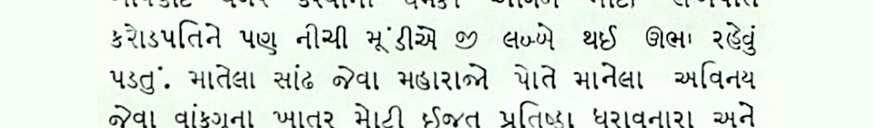 કરોડપતિને પણ નીચી મૂંડીએ જી લબ્બે થઈ ઊભા રહેવું
પડતું. માતેલા સાંઢ જેવા મહારાજો પોતે માનેલા અવિનય
જેવા વાંકગુના ખાતર મોટી ઈજત પ્રતિષ્ઠા ધરાવનારા અને